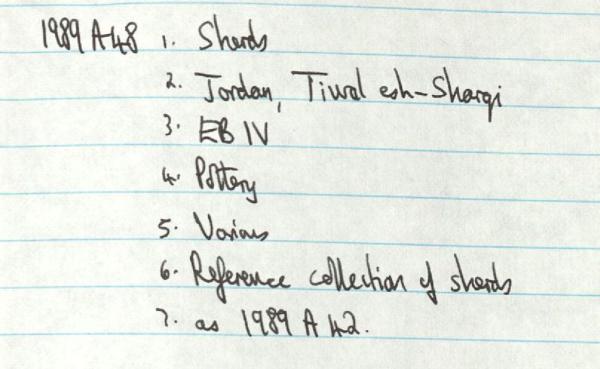 1989 A48 1. Sherds
2. Jordan, Tiwal esh-Sharqi
3. EB IV
4. Pottery
5. Various
6. Reference collection of sherds
7. as 1989 A 42.